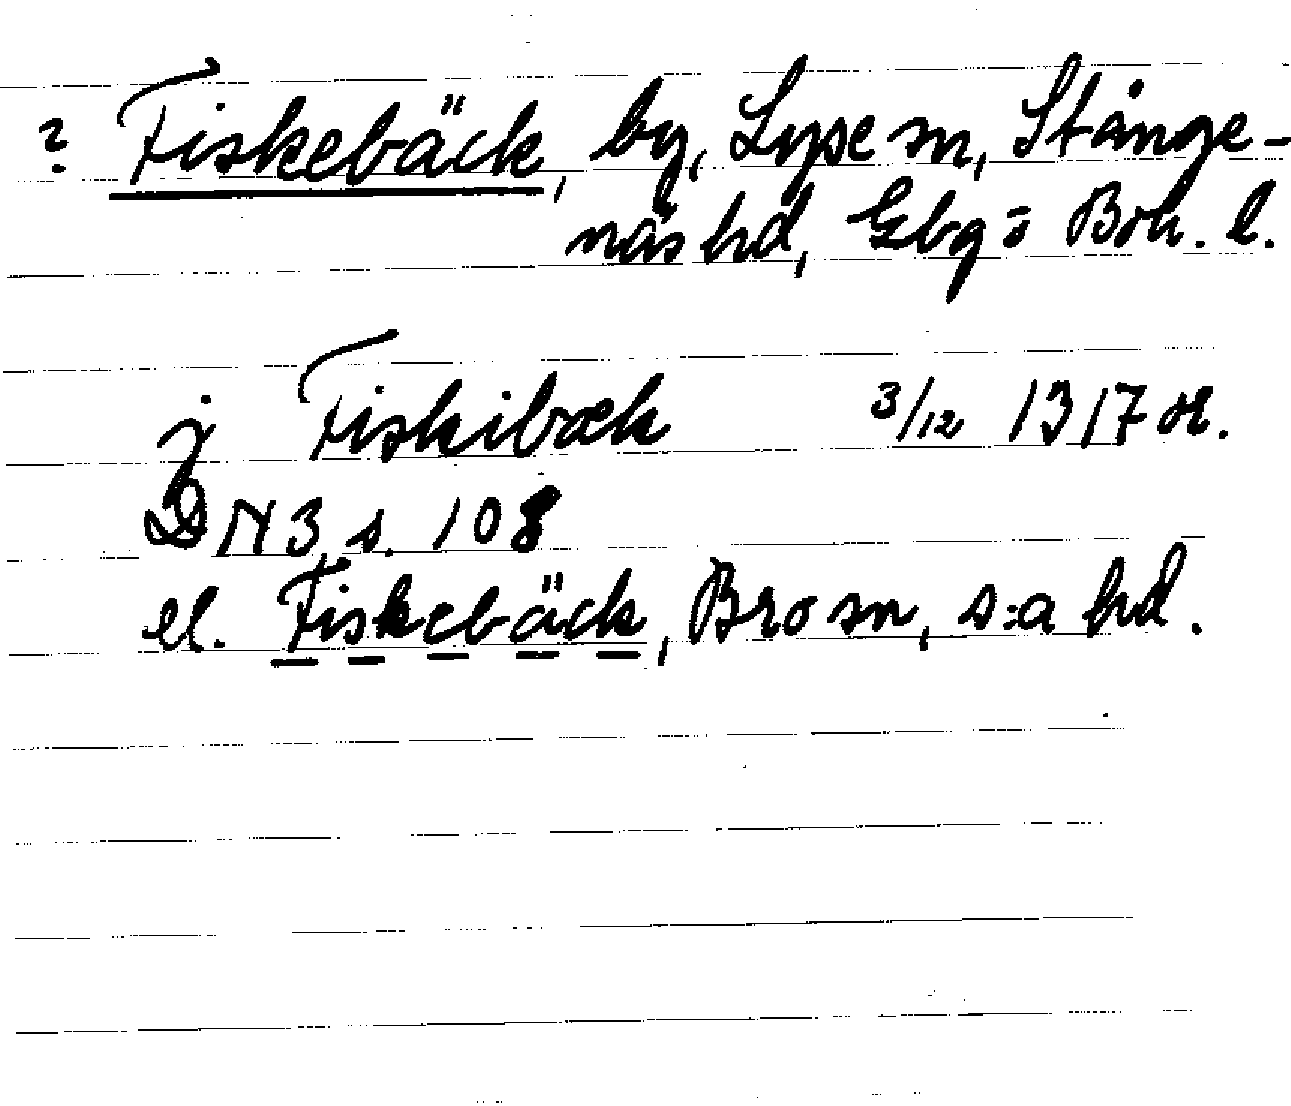 ? Fiskebäck, by, Lyse sn, Stånge-
näs hd, Gbg o Boh. l.
j Fiskibæk 3/12 1317 or.
DN 3 s. 108
el. Fiskebäck, Bro sn, s:a hd.